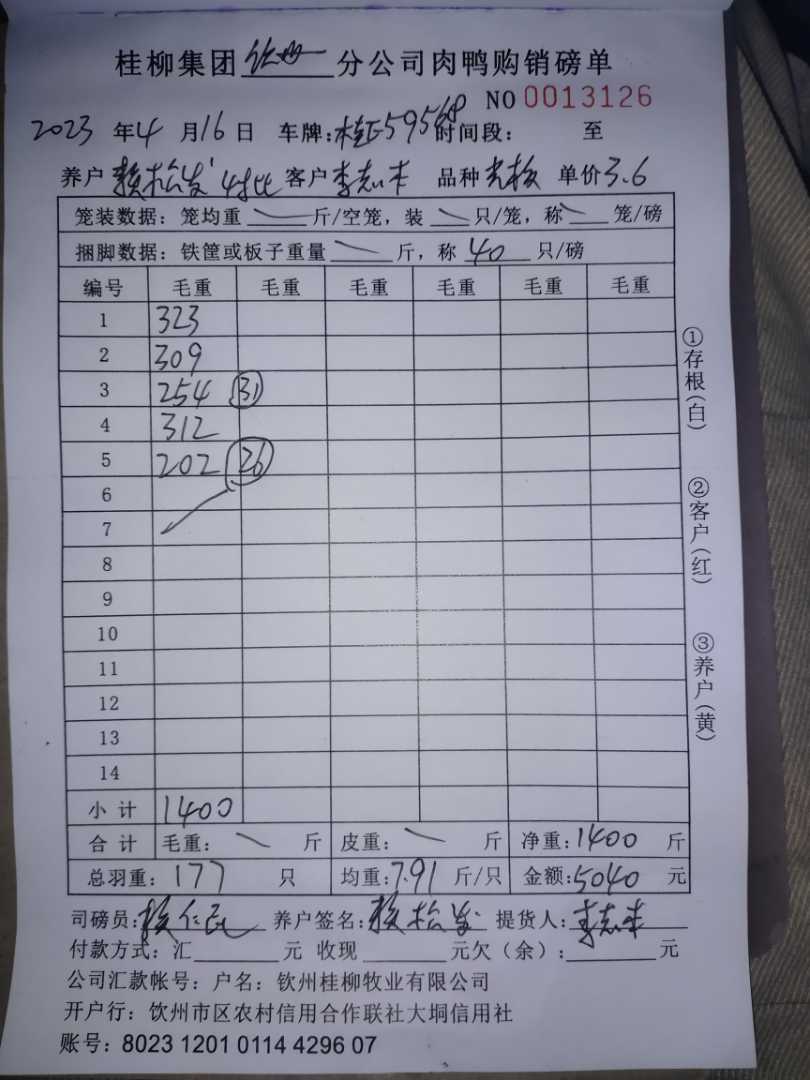 桂柳集团钦州分公司肉鸭购销磅单
NO 0013126
2023 年 4 月 16 日 车牌:桂 59568 时间段: 至
养户 赖松发 对比 客户 李志 品种 单价 3.6
笼装数据: 笼均重 斤/空笼, 装 只/笼, 称 笼/磅
捆脚数据: 铁筐或板子重量 斤, 称 40 只/磅
编号 毛重 毛重 毛重 毛重 毛重 毛重
1 323
2 309
3 254 31
4 312
5 202 26
6
7
8
9
10
11
12
13
14
小计 1400
合计 毛重: 斤 皮重: 斤 净重:1400 斤
总羽重: 177 只 均重:7.91 斤/只 金额:5040 元
司磅员:赖仁 养户签名:赖松发 提货人:李志
付款方式: 汇 元 收现 元欠(余): 元
公司汇款帐号: 户名: 钦州桂柳牧业有限公司
开户行: 饮州市区农村信用合作联社大垌信用社
账号: 8023 1201 0114 4296 07
①存根(白)
②客户(红)
③养户(黄)